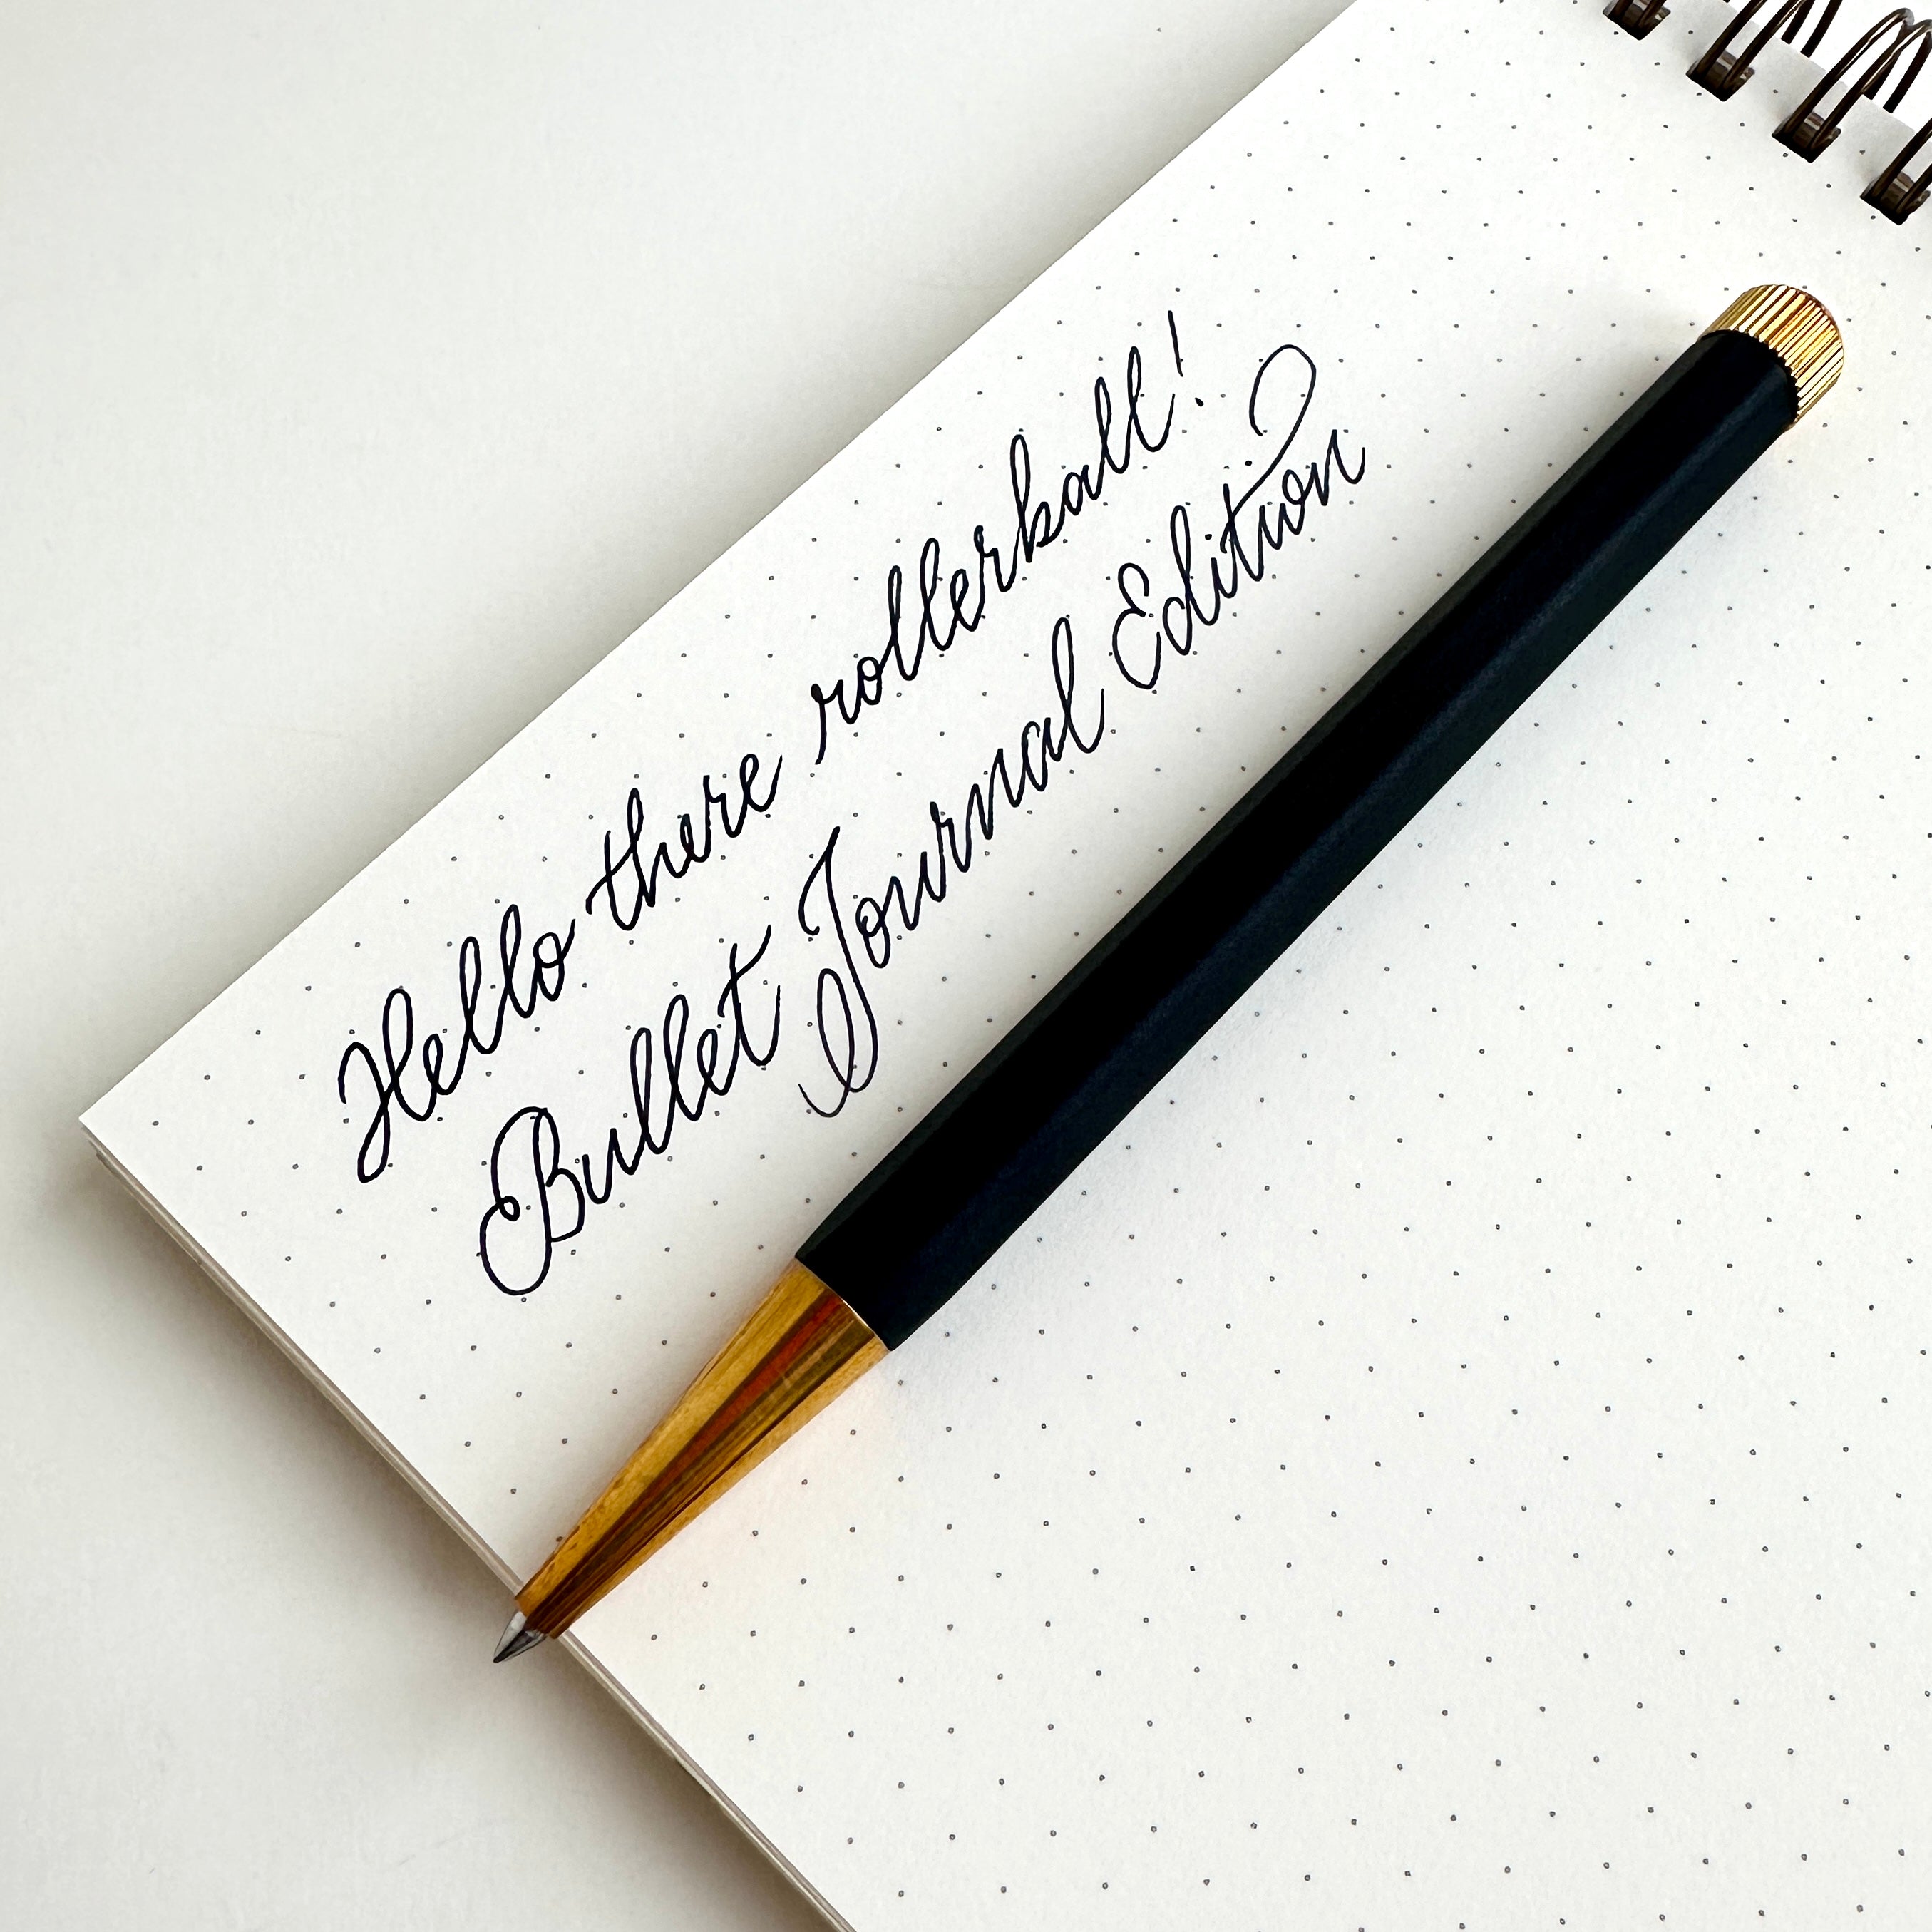 Hello there rollerball!
Bullet Journal Edition